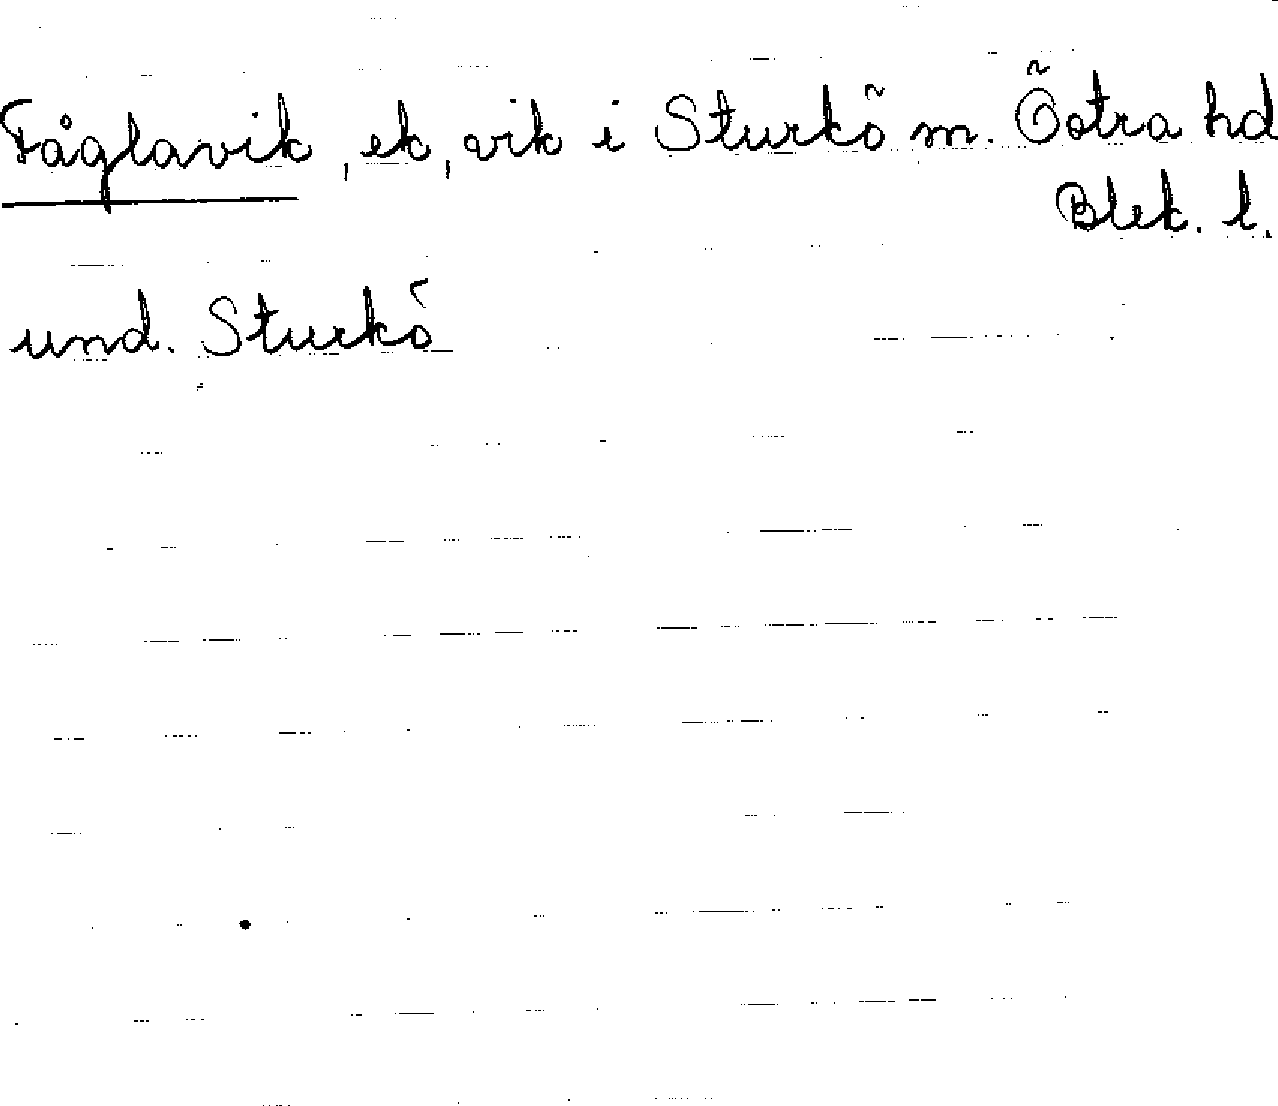 Fåglavik, ek, vik i Sturkö m. Östra hd
Blek. l.
und. Sturkö